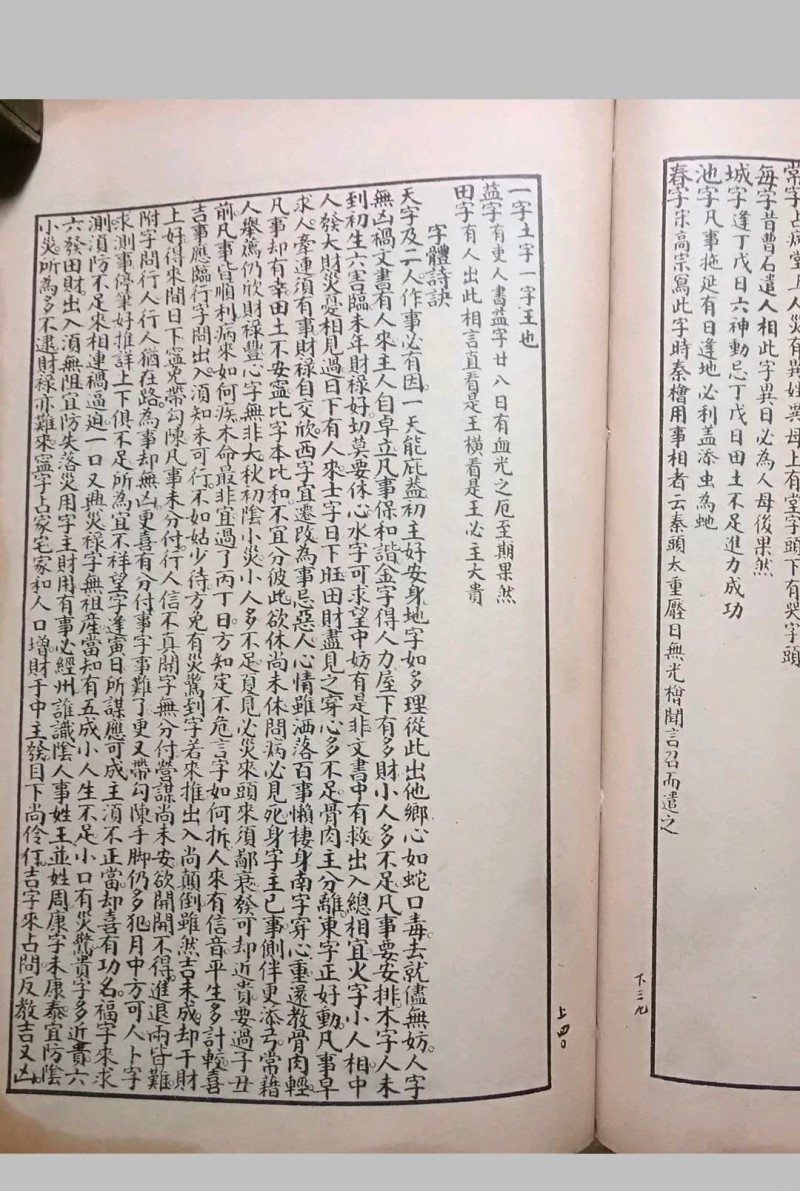 常字占病堂上人災有異姓異母上有堂字頭下有哭字頭
每字昔曹石遣人相此字異日必為人母後果然
城字逢丁戊日六神動忌丁戊日田土不足進力成功
池字凡事拖延有日逢地必利蓋添虫為虵
春字宋高宗寫此字時秦檜用事相者云秦頭太重壓日無光檜聞言召而遣之
下三九
一字土字一字王也
益字有吏人書益字廿八日有血光之厄至期果然
田字有人出此相言直看是王橫看是王必主大貴
字體詩訣
天字及二人作事必有因一天能庇益初主好安身地字如多理從此出他鄉心如蛇口毒去就儘無妨人字
無凶禍文書有人來主人自卓立凡事保和諧金字得人力屋下有多財小人多不足凡事要安排木字人未
到初生六害臨未年財祿好切莫要休心水字可求望中妨有是非文書中有救出入總相宜火字小人相中
人發大財災憂相見過日下有人來士字日下旺田財盡見之穿心多不足骨肉主分離東字正好動凡事早
求人牽連須有事財祿自交欣西字宜遷改為事忌惡人心情雖洒落百事懶棲身南字穿心重還教骨肉輕
凡事却有幸田土不安寧比字本比和不宜分彼此欲休尚未休問病必見死身字主己事側伴更添弓常藉
人舉薦仍欣財祿豐心字無非大秋初陰小災小人多不足夏見必災來頭來須鄙衰發可却近貴要過子丑
前凡事皆順利病來如何疾木命最非宜過了丙丁日方知定不危言字如何拆人來有信音平生多計較喜
吉事應臨行字問出入須知未可行不如姑少待方免有災驚到字若來推出入尚顛倒雖然吉未成却于財
上好得來問日下寧免帶勾陳凡事未分付行人信不真開字無分付營謀尚未安欲開開不得進退兩皆難
附字問行人行人猶在路為事却無凶更喜有分付事字事難了更又帶勾陳手脚仍多犯月中方可人卜字
求測事停筆好推詳上下俱不足所為宜不祥望字逢寅日所謀應可成主須不正當却喜有功名福字來求
測須防不足來相連禍逼迫一口又興災祿字無祖產當知有五成小人生不足小口有災驚貴字多近貴六
六發田財出入須無阻宜防失落災用字主財用有事必經州誰識陰人事姓王並姓周康字未康泰宜防陰
小災所為多不逮財祿亦難來寧字占家宅家和人口增財于中主發目下尚伶仃吉字來占問反教吉又凶
上四〇